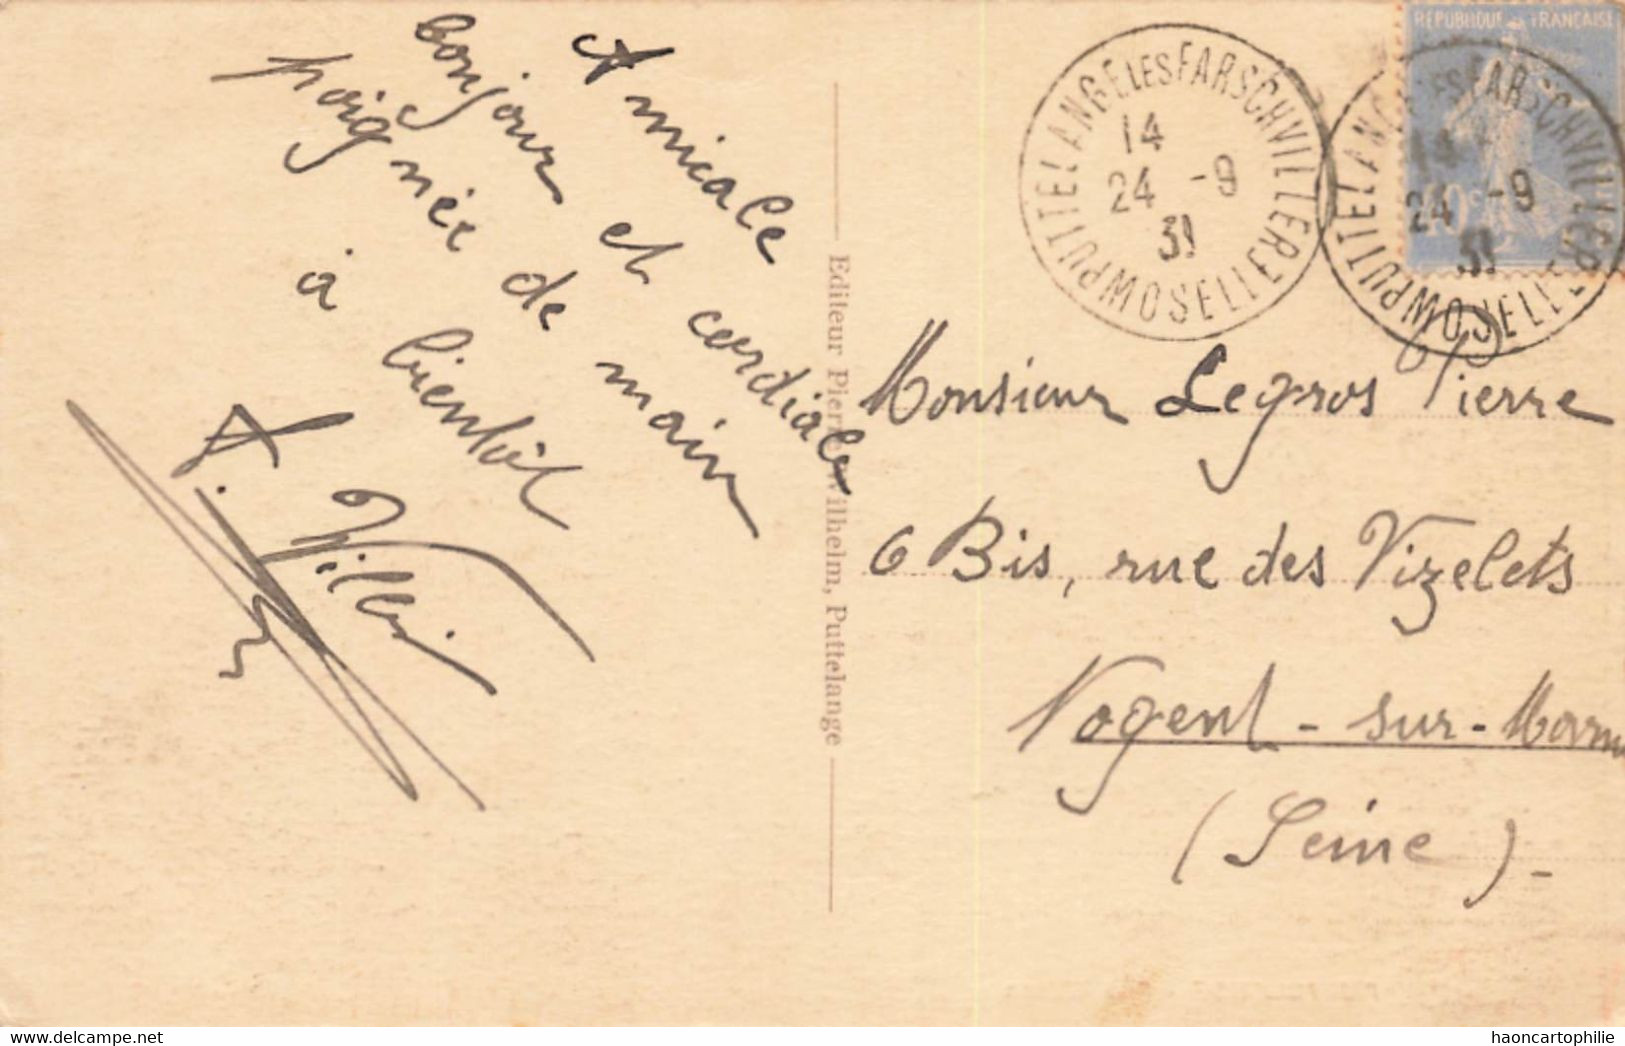 Amicale
bonjour et cordiale
poignée de main
à bientôt
Editeur Pierre Wilhelm, Puttelange
PUTTELANGE LES FARSCHVILLER
14
24 -9
31
MOSELLE
REPUBLIQUE FRANÇAISE
PUTTELANGE LES FARSCHVILLER
14
24 -9
31
MOSELLE
Monsieur Legros Pierre
6 Bis, rue des Vizelets
Nogent-sur-Marne
(Seine).-
delcampe.net
haoncartophilie